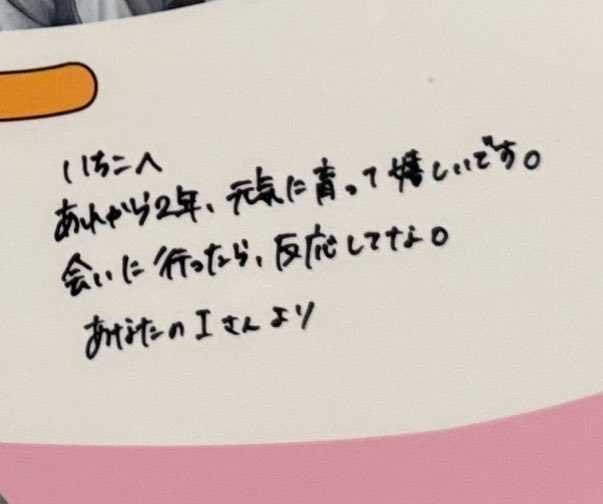 いちごへ
あれから2年、元気に育って嬉しいです。
会いに行ったら、反応してな。
あなたのIさんより